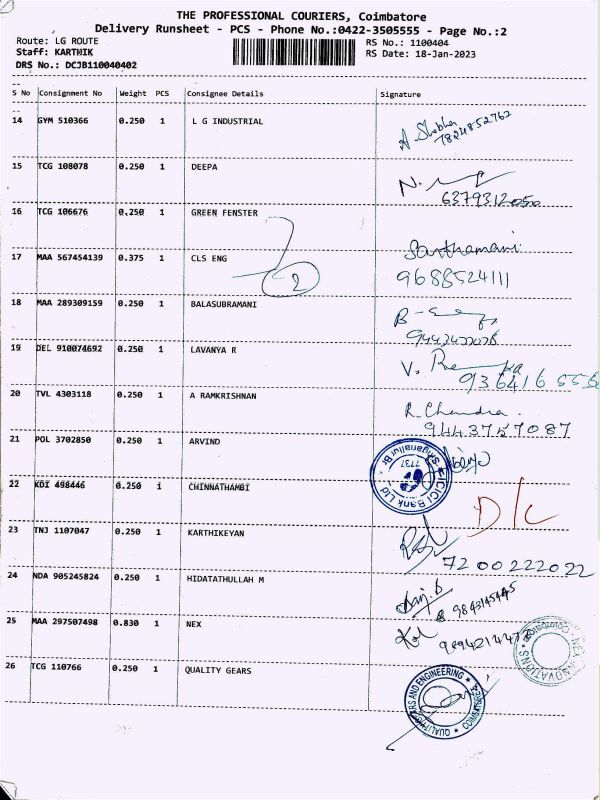 THE PROFESSIONAL COURIERS, Coimbatore
Delivery Runsheet - PCS - Phone No.:0422-3505555 - Page No.:2
Route: LG ROUTE
RS No.: 1100404
Staff: KARTHIK
RS Date: 18-Jan-2023
DRS No.: DCJB110040402
S No Consignment No Weight PCS Consignee Details Signature
14 GYM 510366 0.250 1 L G INDUSTRIAL
7824852762
15 TCG 108078 0.250 1 DEEPA
6379312050
16 TCG 106676 0.250 1 GREEN FENSTER
17 MAA 567454139 0.375 1 CLS ENG
2
9688524111
18 MAA 289309159 0.250 1 BALASUBRAMANI
19 DEL 910074692 0.250 1 LAVANYA R
936416 5556
20 TVL 4303118 0.250 1 A RAMKRISHNAN
R. Chandra.
9443757087
21 POL 3702850 0.250 1 ARVIND
ICICI Bank Ltd Singanallur Br 7737
22 KDI 498446 0.250 1 CHINNATHAMBI
D/C
23 TNJ 1107047 0.250 1 KARTHIKEYAN
7200222022
24 NDA 905245824 0.250 1 HIDATATHULLAH M
25 MAA 297507498 0.830 1 NEX
26 TCG 110766 0.250 1 QUALITY GEARS